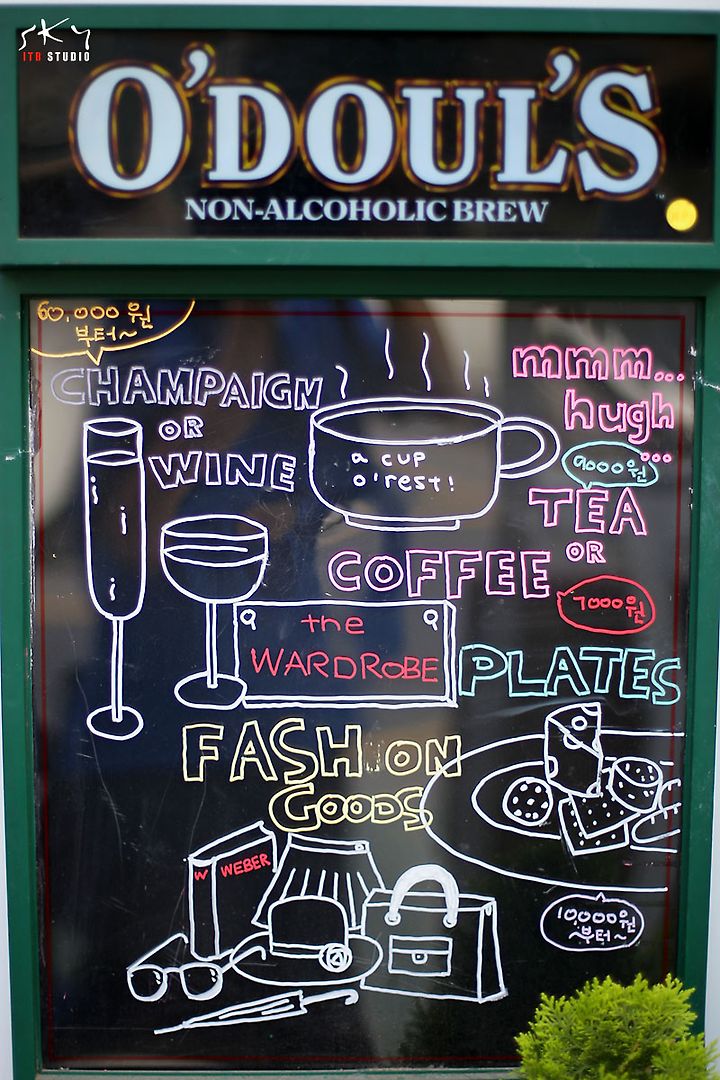 SKY
ITB STUDIO
O'DOUL'S
NON-ALCOHOLIC BREW
60,000원
부터~
CHAMPAIGN
OR
WINE
a cup
o'rest!
mmm...
hugh
...
9000원
TEA
OR
COFFEE
7000원
the
WARDROBE
PLATES
FASHION
GOODS
W WEBER
10,000원
~부터~